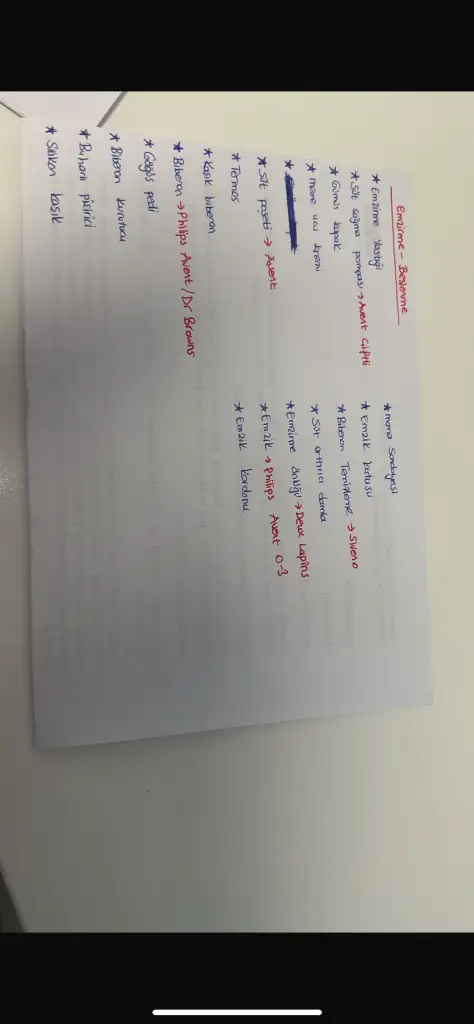 Emzirme - Beslenme
* Emzirme Yastığı
* Süt sağma pompası → Avent Çiftli
* Gümüş kapak
* meme ucu kremi
*
* Süt poşeti → Avent
* Termos
* Kaşık biberon
* Biberon → Philips Avent / Dr Browns
* Göğüs pedi
* Biberon kurutucu
* Buharlı pişirici
* Silikon kaşık
* mama sandalyesi
* Emzik kutusu
* Biberon Temizleme → Siveno
* Süt arttırıcı damla
* Emzirme önlüğü → Deux Lapins
* Emzik → Philips Avent 0-3
* Emzik kordonu